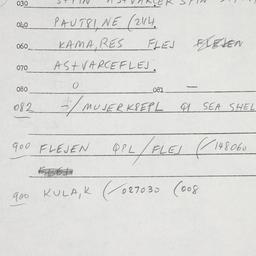 030
040 PAUT81, NE (244
060 KAMA, RES FLEJ
070 ASTVARCEFLEJ.
080 0 081 —
082 -/ MUJERK8EPL Q1 SEA SHEL
900 FLEJEN QPL/FLEJ (/148060
900 KULA, K (/027030 (008